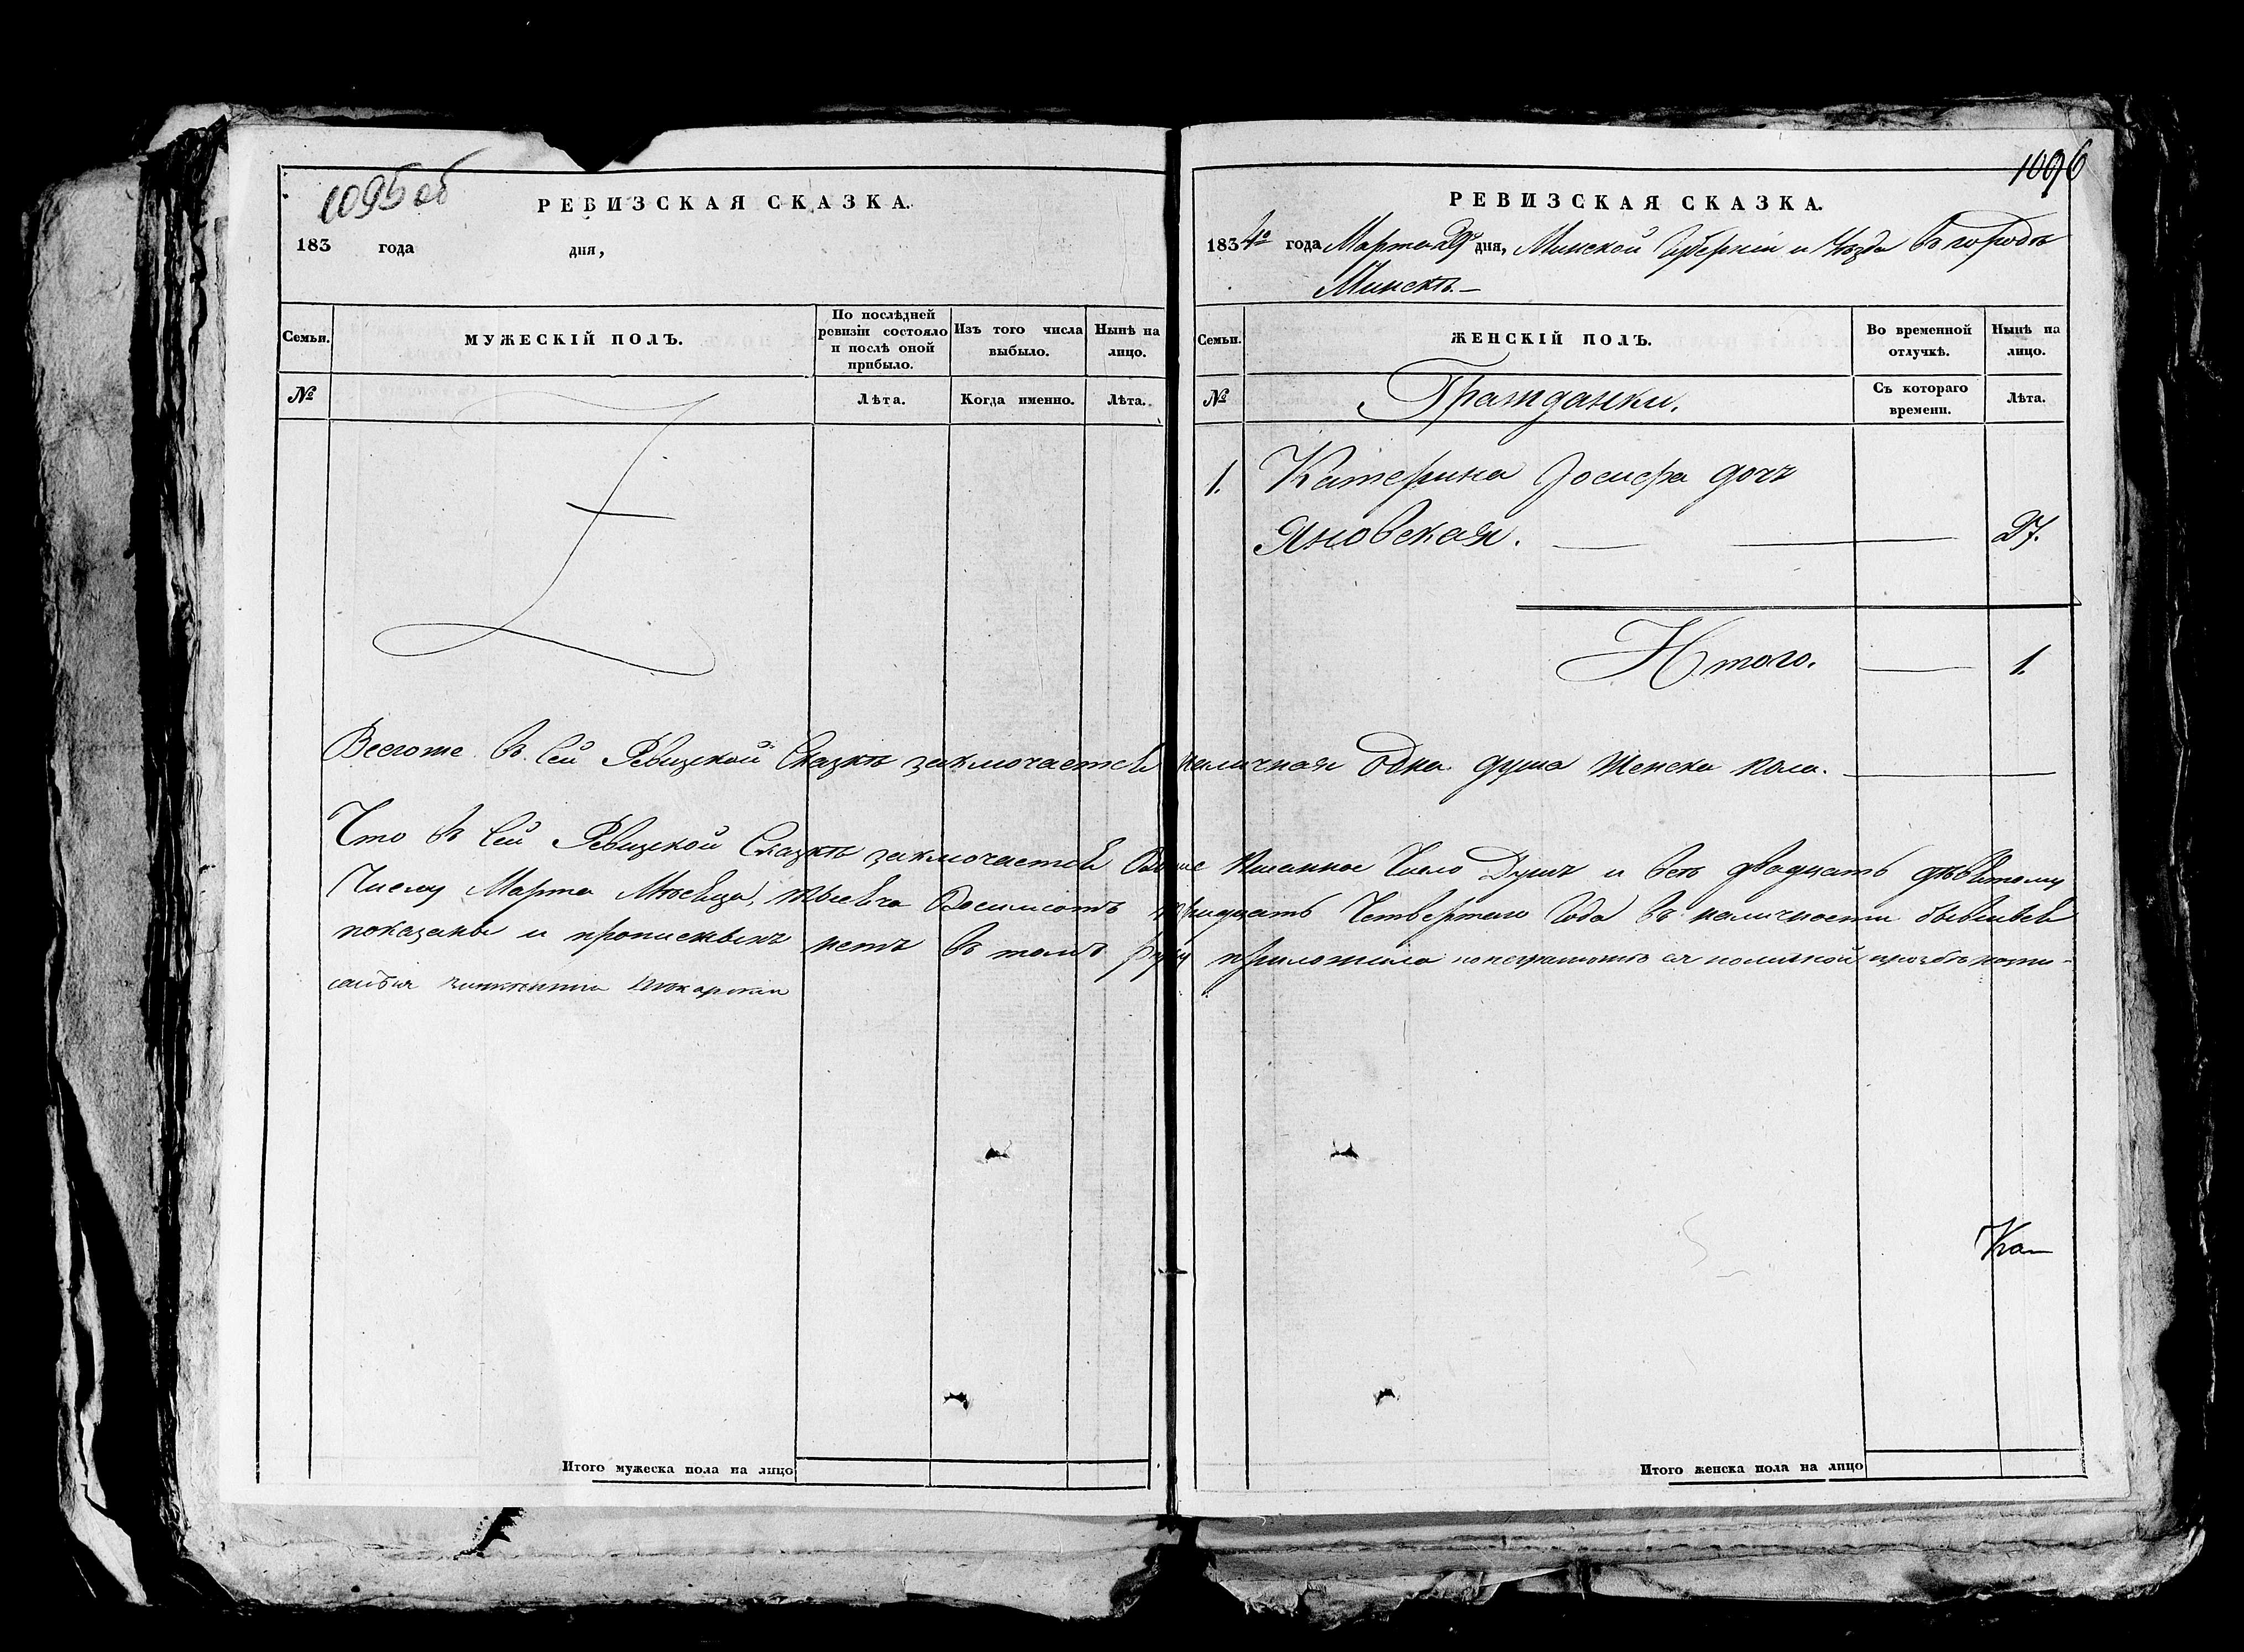 1095 об
РЕВИЗСКАЯ СКАЗКА.
183 года дня,
Семьи.
МУЖЕСКІЙ ПОЛЪ.
По послѣдней ревизіи состояло и послѣ оной прибыло.
Изъ того числа выбыло.
Нынѣ на лицо.
№
Лѣта.
Когда именно.
Лѣта.
1096
РЕВИЗСКАЯ СКАЗКА.
1834го года Марта 29 дня, Минской Губерніи и Уѣзда въ городѣ
Минскѣ.
Семьи.
ЖЕНСКІЙ ПОЛЪ.
Во временной отлучкѣ.
Нынѣ на лицо.
№
Гражданки.
Съ котораго времени.
Лѣта.
1. Катерина Іосифа дочь
Яновская. 27.
Итого. 1.
Всегоже въ сей Ревизской Сказкѣ заключается наличная одна душа женска пола.
Что въ сей Ревизской Сказкѣ заключается Выше писанное Число Душъ и всѣ двадцать дѣвятому
Числу Марта Мѣсяца, тысяча Восимсотъ тридцать Четвертаго Года въ наличности бывшія
показаны и прописныхъ нетъ въ томъ руку приложила по неграмотѣ ея
Ка
Итого мужеска пола на лицо
Итого женска пола на лицо